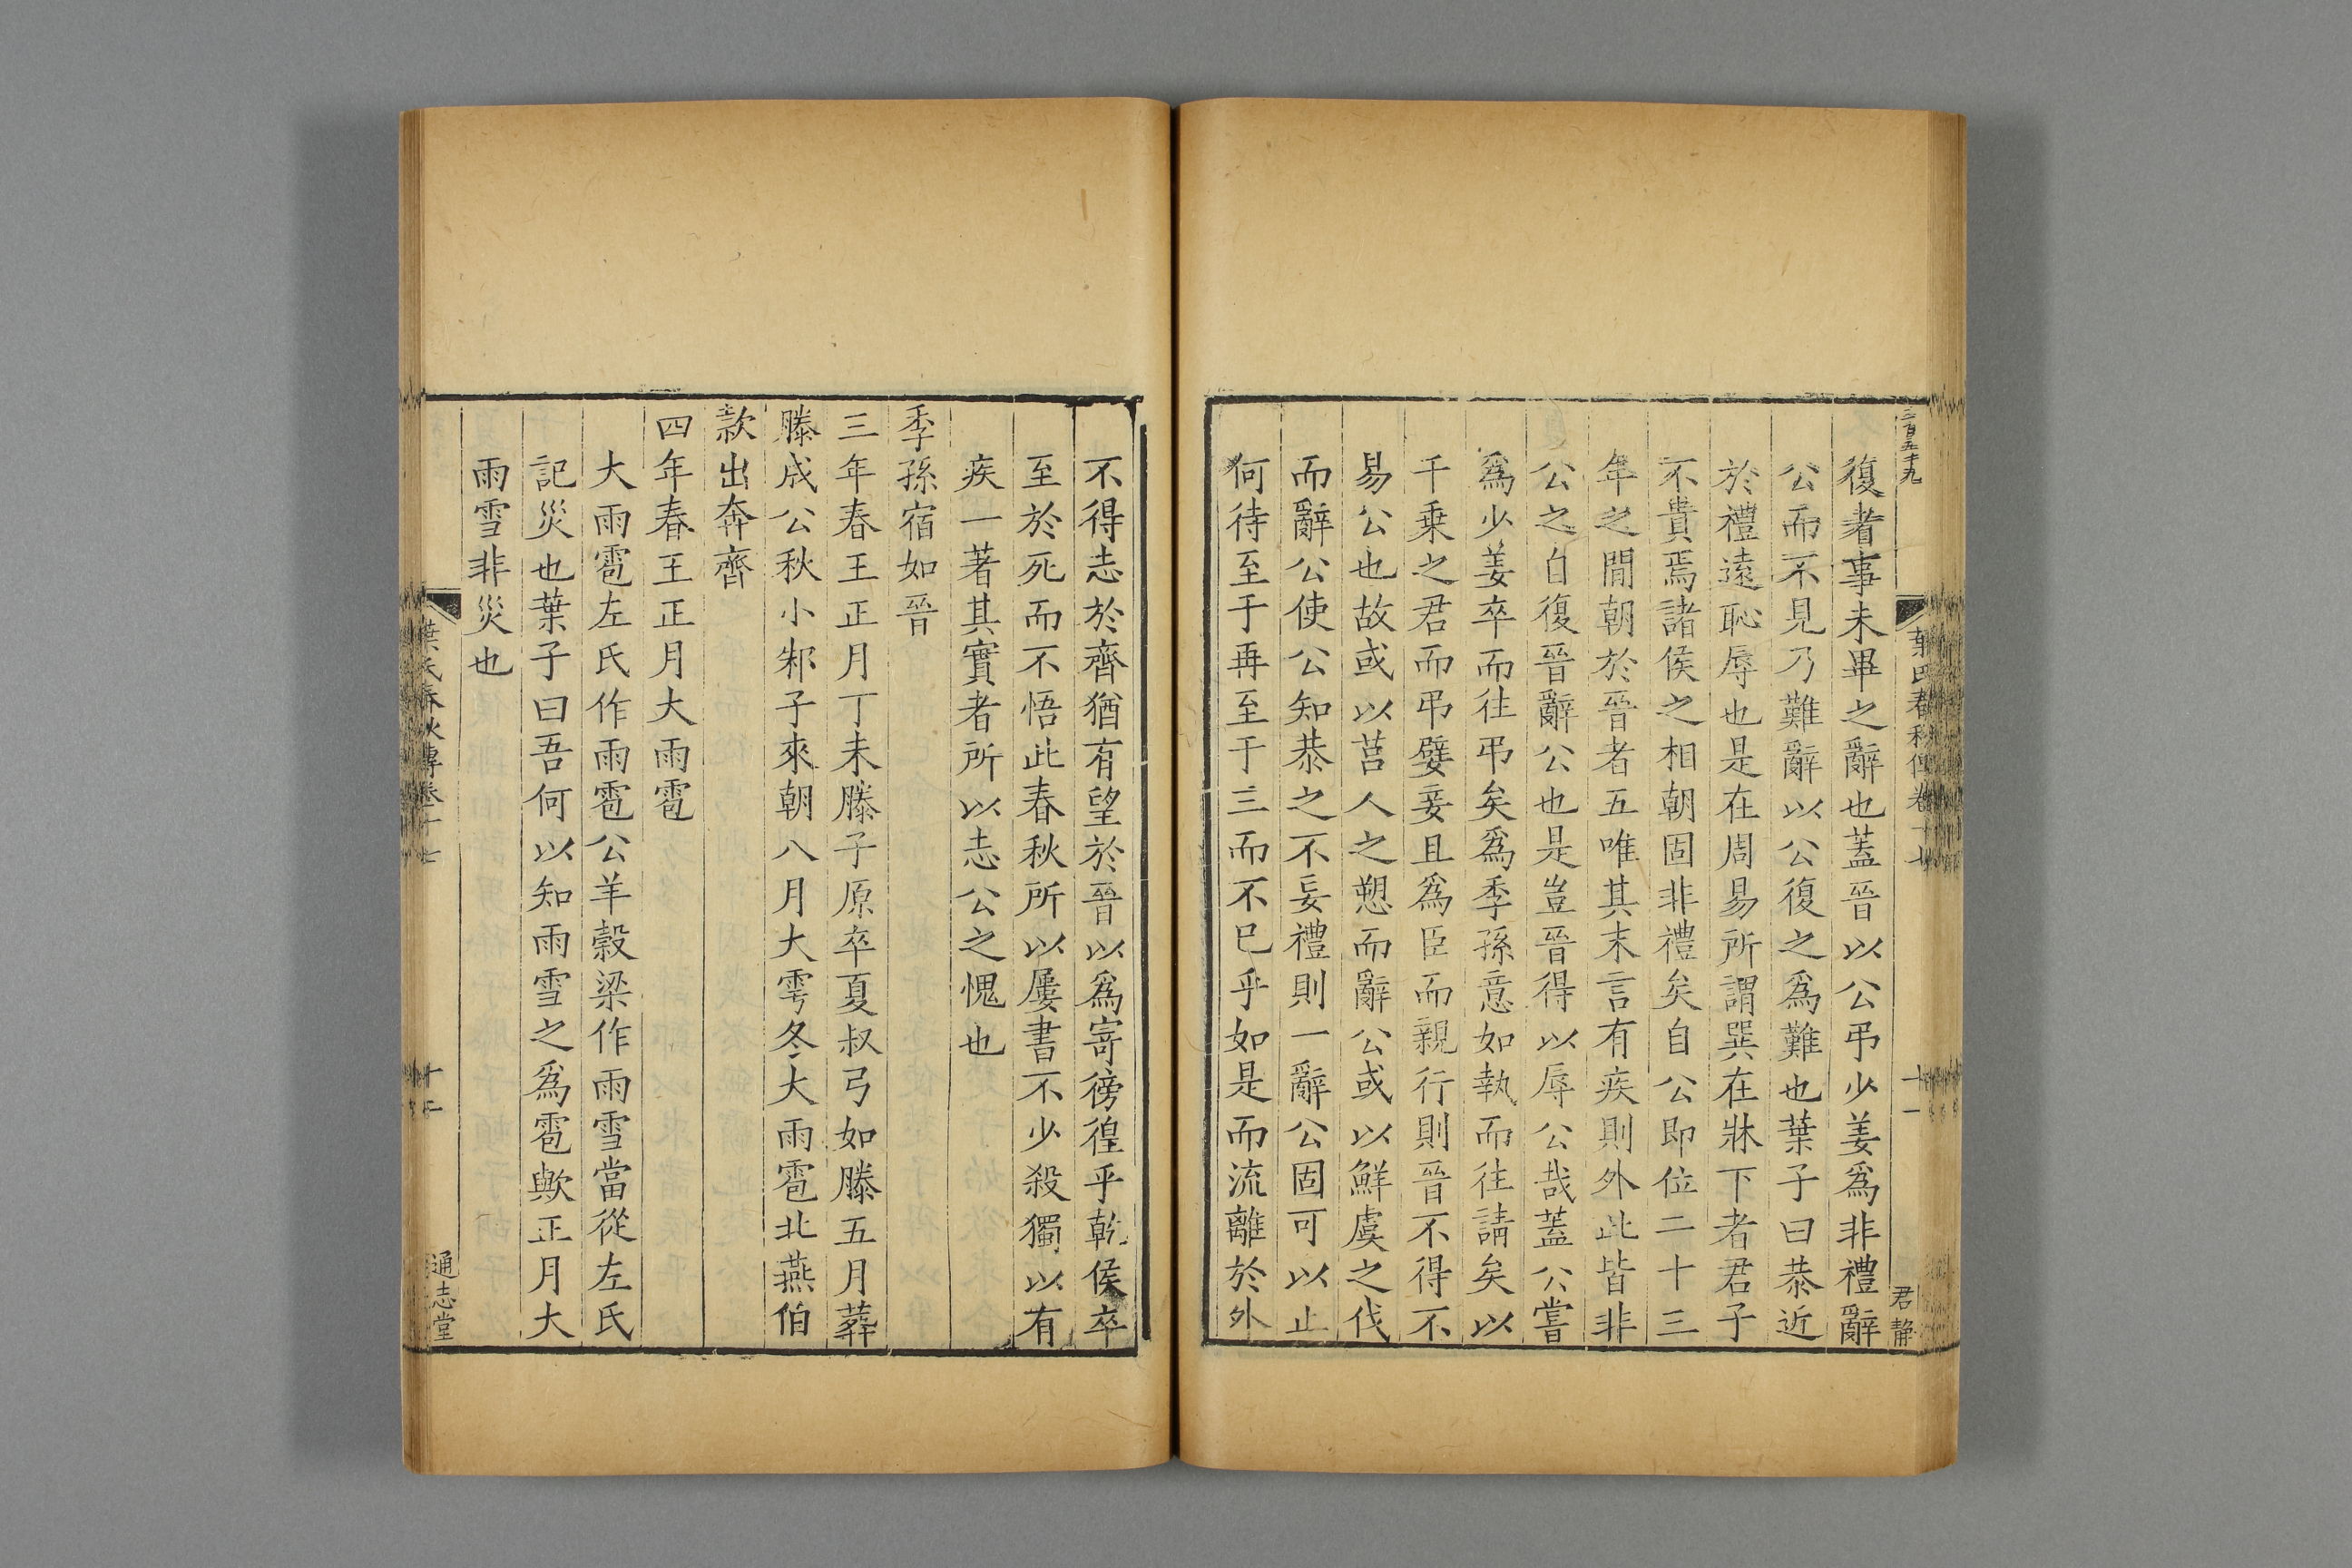 三百五十九
葉氏春秋傳卷十七
十一
君靜
復者事未畢之辭也蓋晉以公弔少姜爲非禮辭
公而不見乃難辭以公復之爲難也葉子曰恭近
於禮遠恥辱也是在周易所謂巽在牀下者君子
不貴焉諸侯之相朝固非禮矣自公即位二十三
年之閒朝於晉者五唯其末言有疾則外此皆非
公之自復晉辭公也是豈晉得以辱公哉蓋公嘗
爲少姜卒而往弔矣爲季孫意如執而往請矣以
千乗之君而弔嬖妾且爲臣而親行則晉不得不
易公也故或以莒人之愬而辭公或以鮮虞之伐
而辭公使公知恭之不妄禮則一辭公固可以止
何待至于再至于三而不已乎如是而流離於外
不得志於齊猶有望於晉以爲寄徬徨乎乾侯卒
至於死而不悟此春秋所以屢書不少殺獨以有
疾一著其實者所以志公之愧也
季孫宿如晉
三年春王正月丁未滕子原卒夏叔弓如滕五月葬
滕成公秋小邾子來朝八月大雩冬大雨雹北燕伯
款出奔齊
四年春王正月大雨雹
大雨雹左氏作雨雹公羊穀梁作雨雪當從左氏
記災也葉子曰吾何以知雨雪之爲雹歟正月大
雨雪非災也
葉氏春秋傳卷十七
十二
通志堂